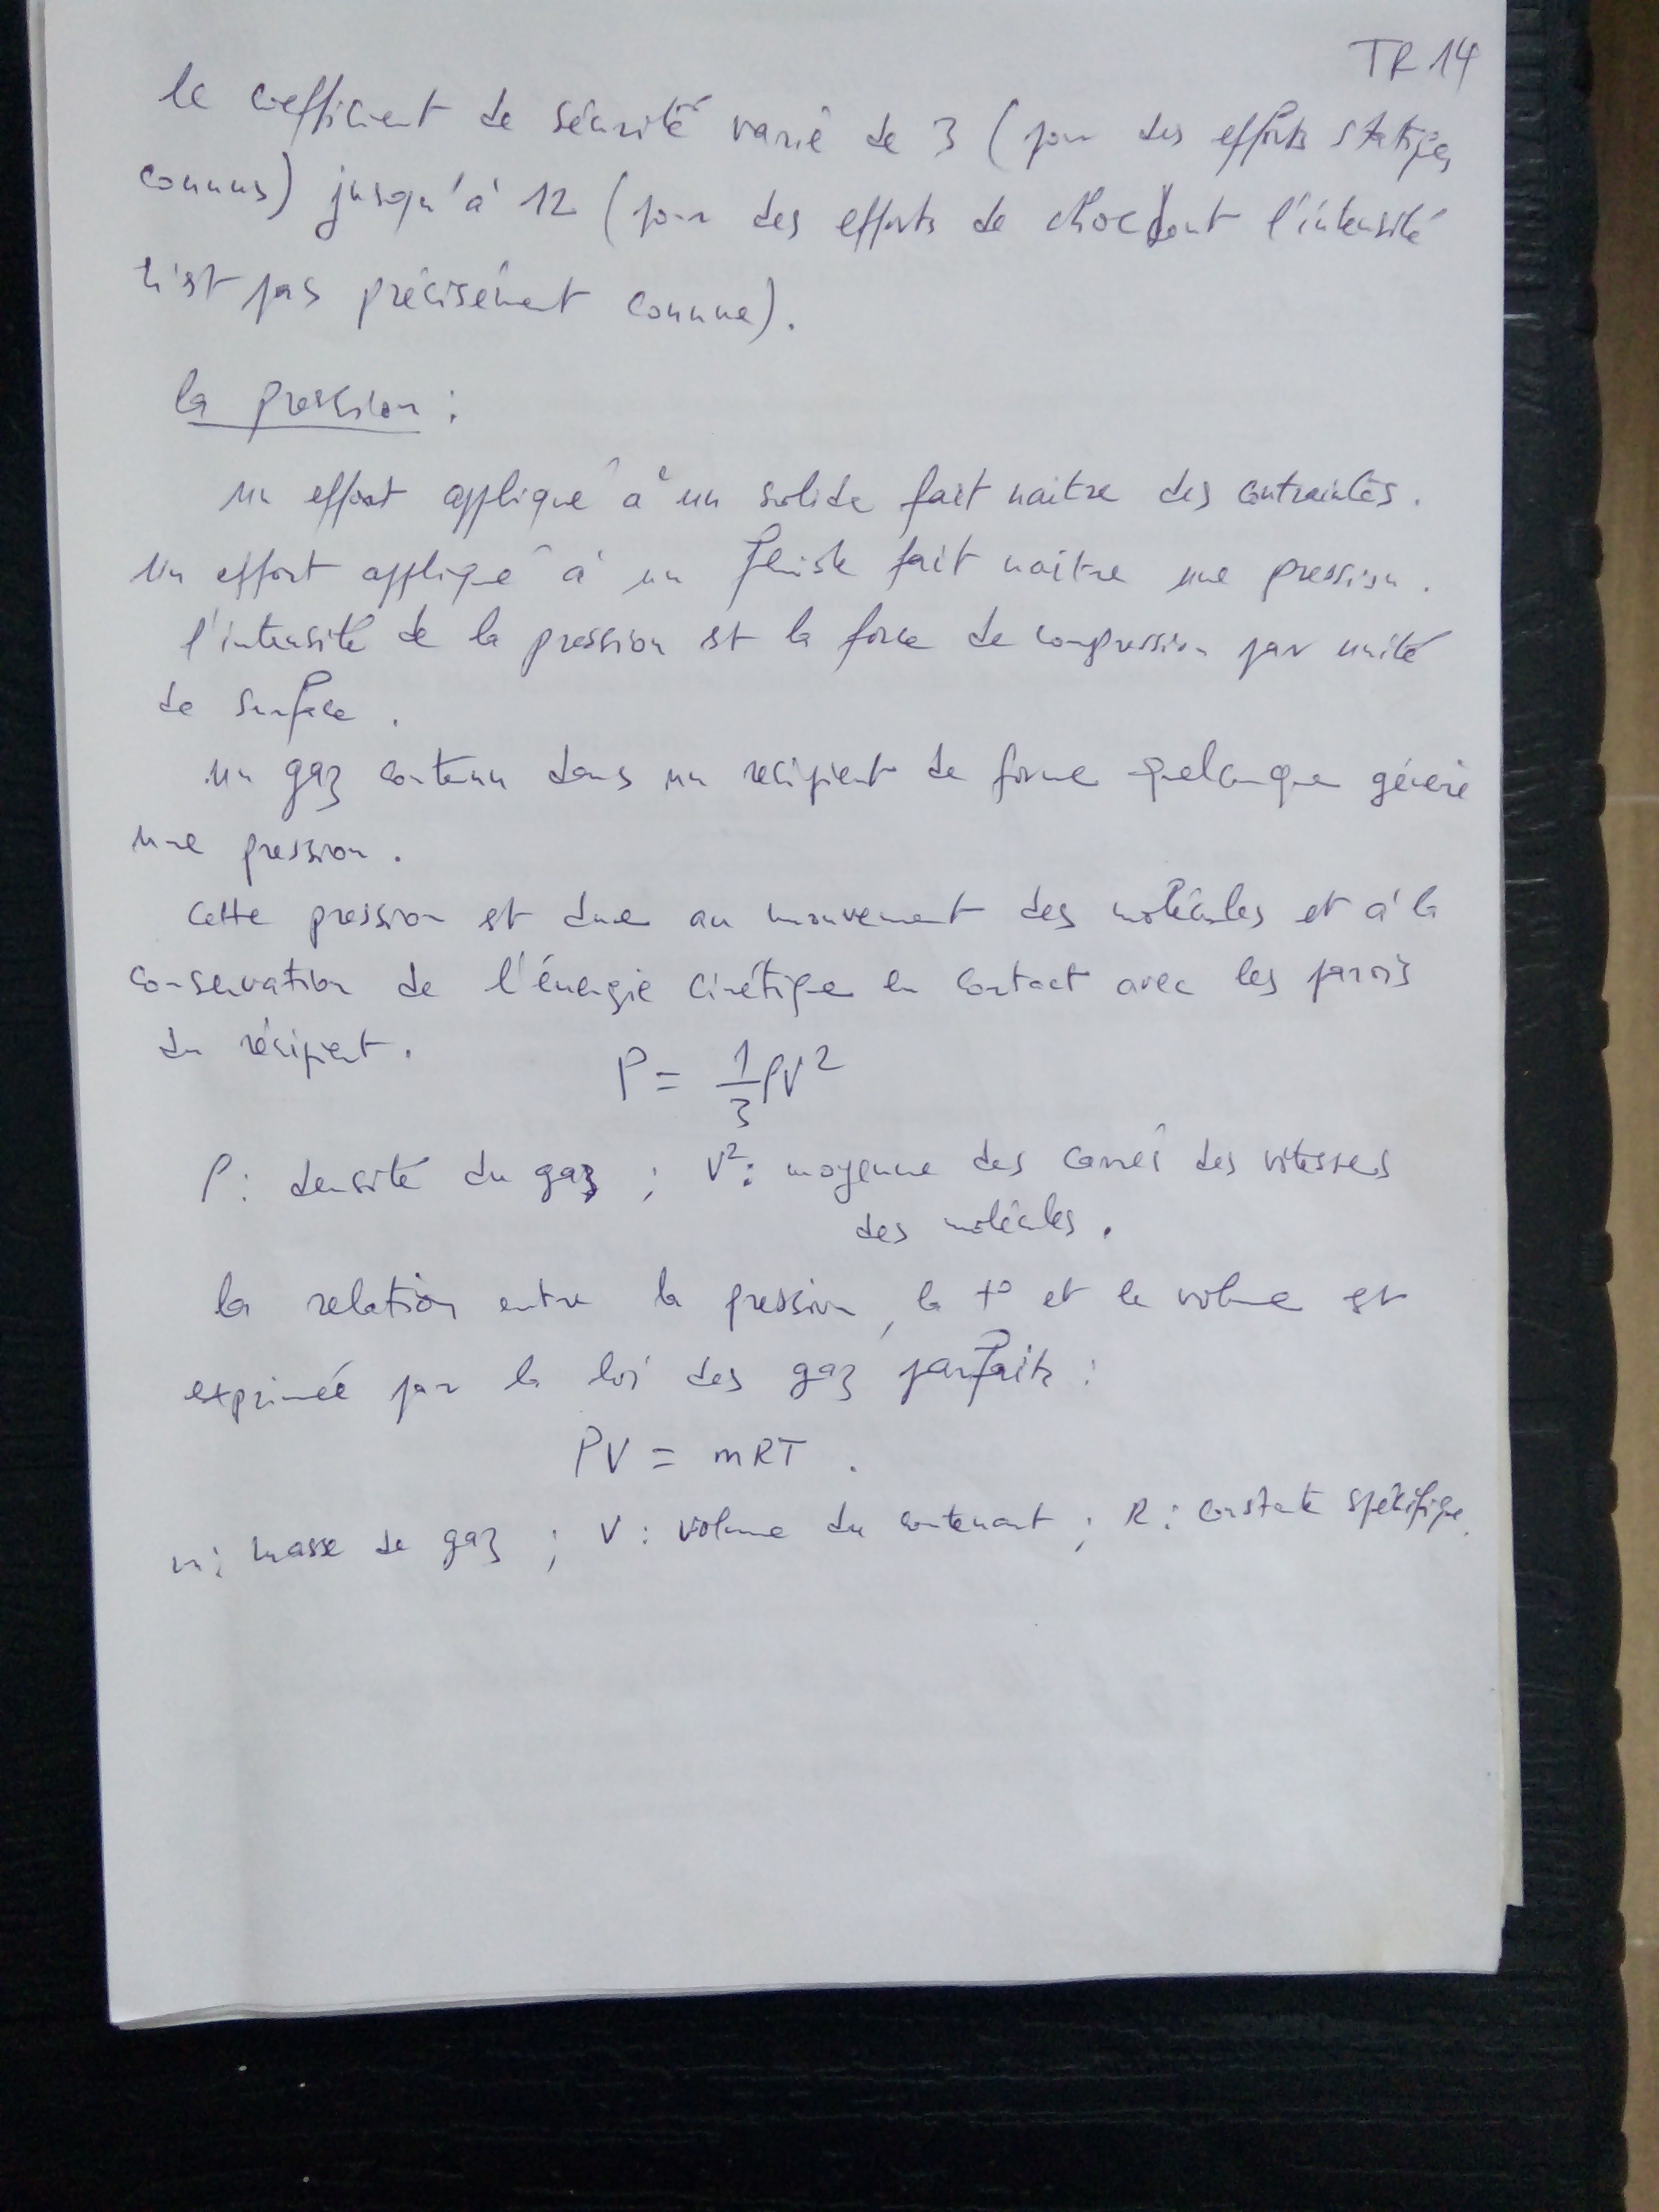 TR 14
le coefficient de sécurité varie de 3 (pour des efforts statiques
connus) jusqu'à 12 (pour des efforts de choc dont l'intensité
n'est pas précisément connue).
la pression :
un effort appliqué à un solide fait naitre des contraintes.
Un effort appliqué à un fluide fait naitre une pression.
l'intensité de la pression est la force de compression par unité
de surface.
un gaz contenu dans un recipient de forme quelconque génère
une pression.
Cette pression est due au mouvement des molécules et à la
conservation de l'énergie cinétique en contact avec les parois
du récipient.
P = 1/3 ρV²
ρ : densité du gaz ; V² : moyenne des carrés des vitesses
des molécules.
la relation entre la pression, la t° et le volume est
exprimée par la loi des gaz parfaits :
PV = mRT.
m : masse de gaz ; V : volume du contenant ; R : constante spécifique.